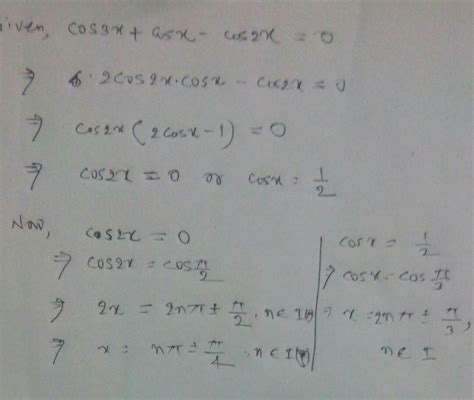 iven, cos3x + cosx - cos2x = 0
⇒ 2cos2x.cosx - cos2x = 0
⇒ cos2x (2cosx - 1) = 0
⇒ cos2x = 0 or cosx = 1/2
Now, cos2x = 0
⇒ cos2x = cos π/2
⇒ 2x = 2nπ ± π/2, n∈I
⇒ x = nπ ± π/4, n∈I
cosx = 1/2
⇒ cosx = cos π/3
⇒ x = 2nπ ± π/3,
n∈I